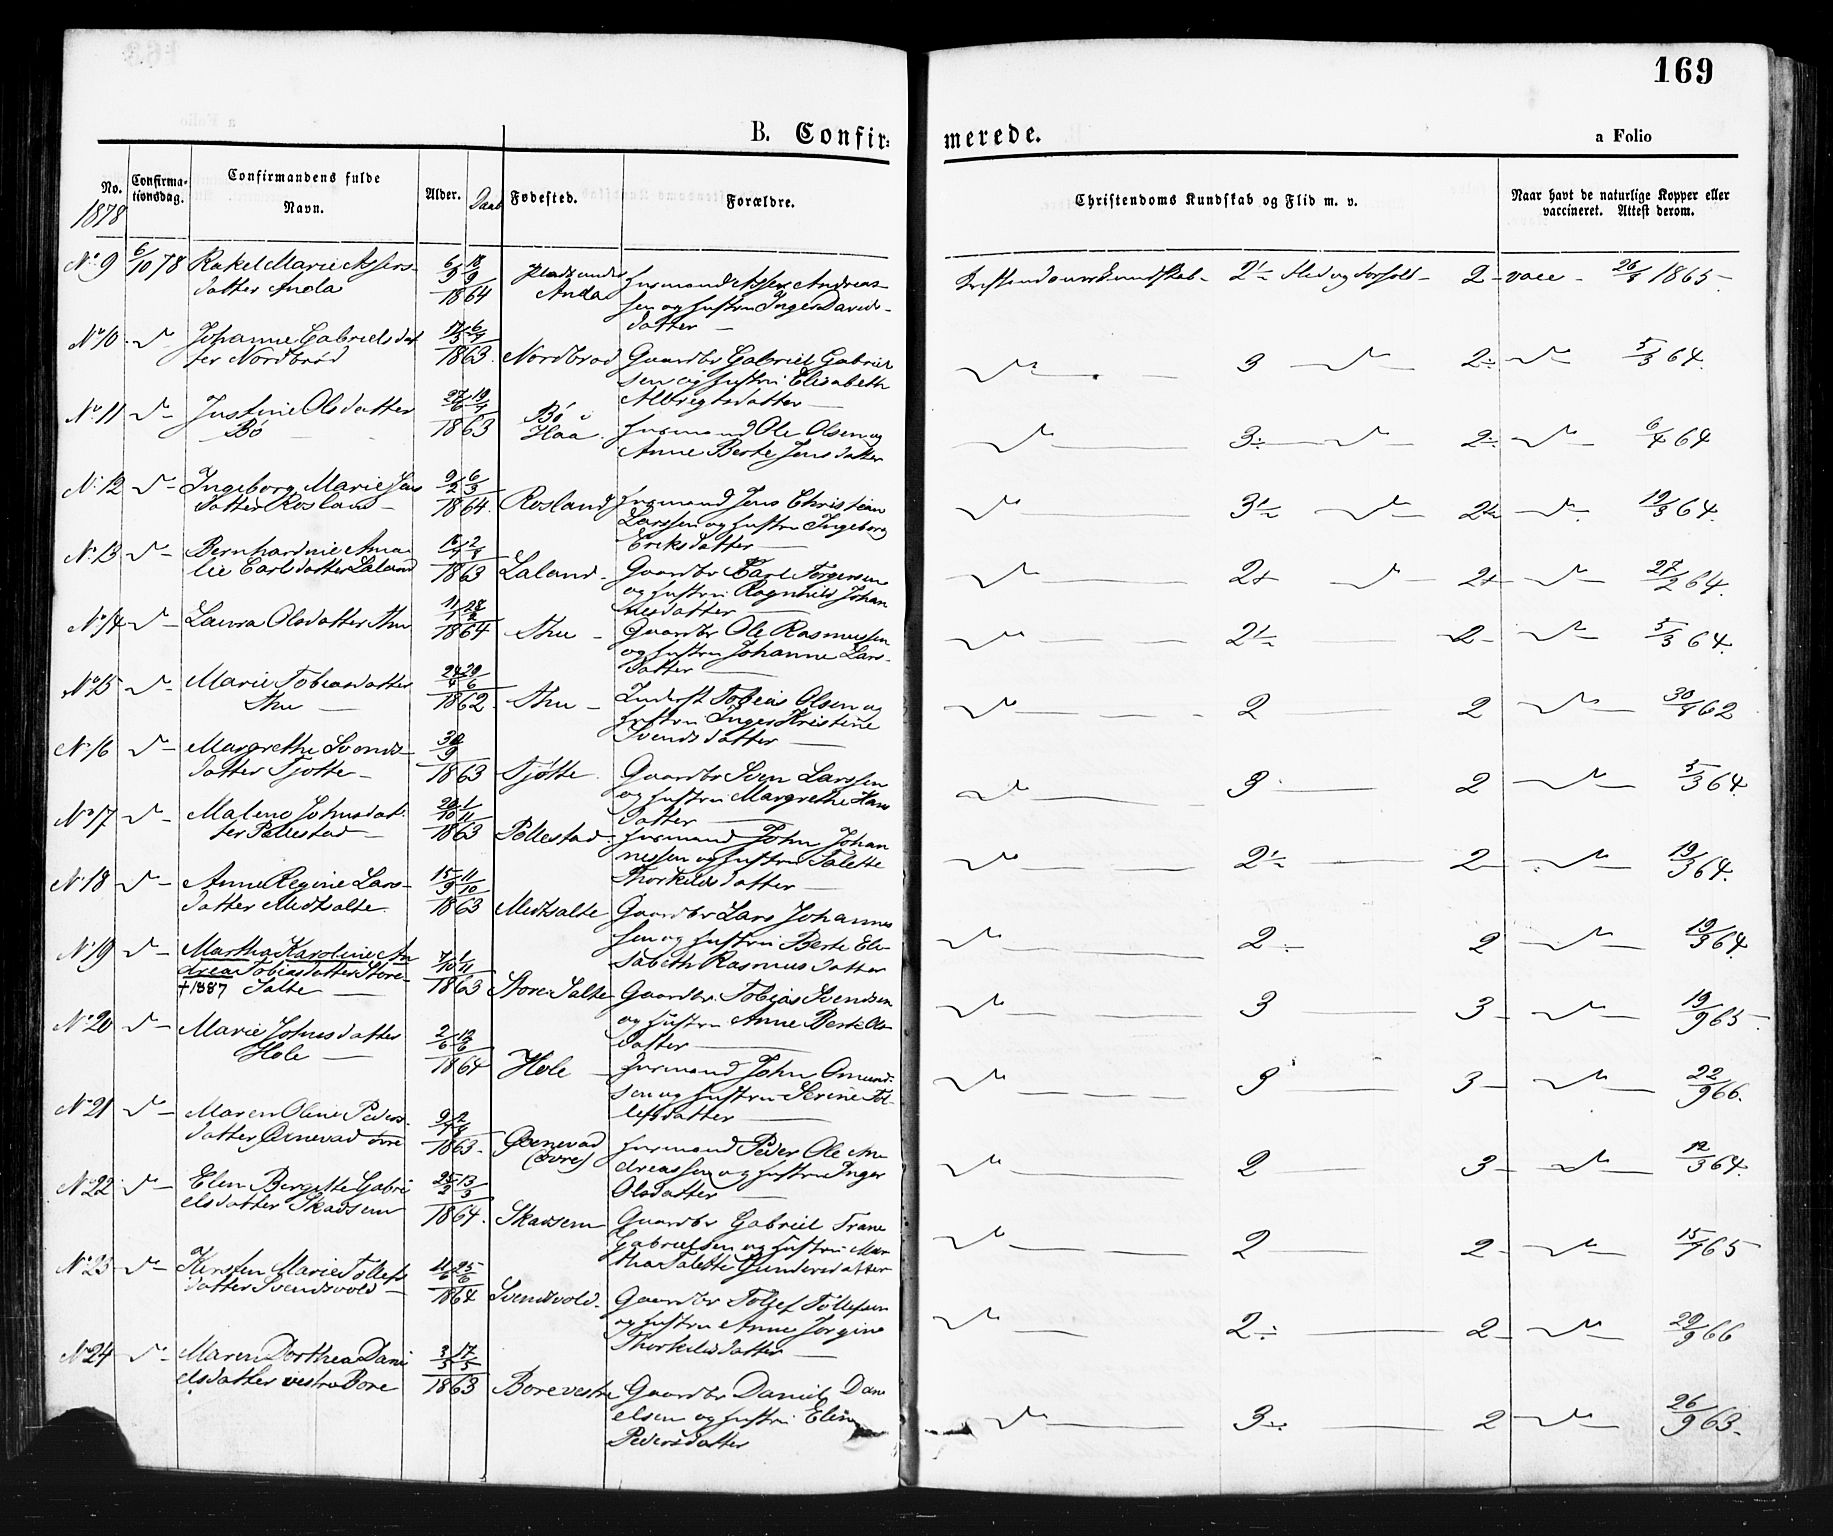 169
B. Confir-
merede.
a Folio
No.
Confirma-
tionsdag.
Confirmandens fulde
Navn.
Alder.
Daab
Fødested.
Forældre.
Christendoms Kundskab og Flid m. v.
Naar havt de naturlige Kopper eller
vaccineret. Attest derom.
1878
No 9 6/10 78 Rakel Marie Assers- 18/9 Plads under Huusmand Asser Andreas-
datter Anda 1864 Anda sen og Hustru Inger Davids-
datter
Kristendomskundskab 2 Flid og Forhold 2 vacc. 26/8 1865
No 10 Johanne Gabrielsdat
ter Nordbrød 1863 Nordbrød Gaardbr Gabriel Gabriel
sen og Hustru Elisabeth
Albregtsdatter
3 2 5/3 64.
No 11 Justine Olsdatter
Bø 1863 Bø i
Haa Huusmand Ole Olsen og
Anne Berte Jensdatter
3 2 6/4 64
No 12 Ingeborg Marie Jens 9/2 6/3
datter Rosland 1864. Rosland Huusmand Jens Christian
Larssen og Hustru Ingeborg
Eriksdatter
19/3 64.
No 13 Bernhardine Ama
lie Carlsdatter Laland 1863 Laland Gaardbr Karl Torgersen
og Hustru Ragnhild Johan
nesdatter
2+ 2+ 27/2 64.
No 14 Laura Olsdatter Thu
1864 Thu Gaardbr Ole Rasmussen
og Hustru Johanne Lars-
datter
2 5/3 64.
No 15 Marie Tobiasdatter 24/4 29/6
Thu 1862. Thu Inderst Tobias Olsen og
Hustru Inger Kristine
Svendsdatter
2 2 30/8 62
No 16 Margrethe Svends-
datter Tjøtte 1863 Tjøtte Gaardbr Sven Larssen
og Hustru Margrethe Hans
datter
3 2 5/3 64.
No 17 Malene Johnsdat- 1/11
ter Pollestad 1863 Pollestad Huusmand John Johan
nessen og Hustru Talette
Thorkildsdatter
2 19/3 64.
No 18 Anne Regine Lars- 15/9 11/10
datter Medsalte 1863 Medsalte Gaardbr Lars Johannes
sen og Hustru Berte Eli-
sabeth Rasmusdatter
2 2 19/3 64.
No 19 Martha Karoline An
drea Tobiasdatter Store- 7/10 1/11
†1887 Salte 1863 Store Salte Gaardbr. Tobias Svendsen
og Hustru Anne Berte Ols-
datter
3 3 19/9 65.
No 20 Marie Johnsdatter 2/6 12/6
Hole 1864 Hole Huusmand John Omund-
sen og Hustru Serine Tol-
lefsdatter
3 22/9 66.
No 21 Maren Oline Peders-
datter Ørnevad øvre 1863. Ørnevad
(øvre) Huusmand Peder Ole An
dreassen og Hustru Inger
Olsdatter
2 3 12/3 64.
No 22 Elen Bergitte Gabri 25/2 13/3
elsdatter Skadsem 1864. Skadsem Gaardbr Gabriel Trane
Gabrielsen og Hustru Mar
tha Talette Gundersdatter
2 2 15/7 65
No 23 Kirsten Marie Tollefs 11/6 25/6
datter Svendsvold 1864 Svendsvold Gaardbr Tollef Tollefsen
og Hustru Anne Jorgine
Thorkildsdatter
2 2 29/9 66
No 24 Maren Dorthea Dani 3/5 17/5
elsdatter vestre Bore 1863 Bore vestre Gaardbr Daniel Dani
elsen og Hustru Elen
Pedersdatter
3 2 26/9 63.